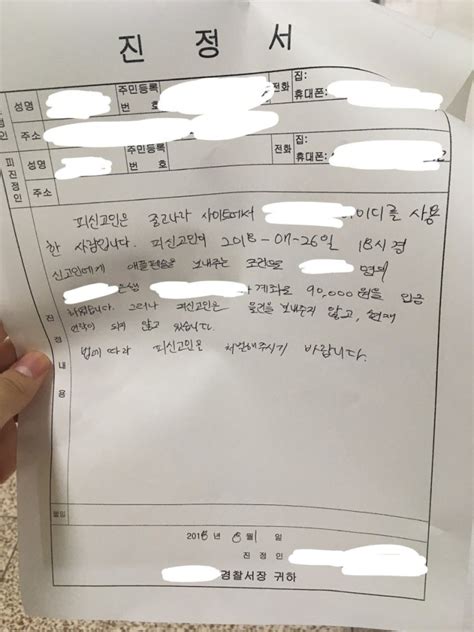 진 정 서
진정인 성명 주민등록번호 전화 집: 휴대폰:
주소
피진정인 성명 주민등록번호 전화 집: 휴대폰:
주소
진정내용
피신고인은 중고나라 사이트에서 아이디를 사용
한 사람입니다. 피신고인이 2018-07-26일 18시경
신고인에게 애플펜슬을 보내주는 조건으로 명의
은행 계좌로 90,000원을 입금
하였습니다. 그러나 피신고인은 물건을 보내주지 않고, 현재
연락이 되지 않고 있습니다.
법에 따라 피신고인을 처벌해주시기 바랍니다.
붙임
2018년 8월 1일
진 정 인
경찰서장 귀하